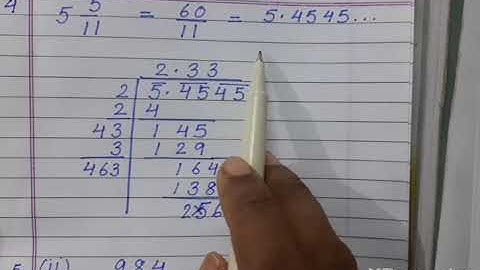 4 5 5/11 = 60/11 = 5.4545...
2.33
2 5.4545
2 4
43 1 45
3 1 29
463 164
138
256
5 (ii) 984